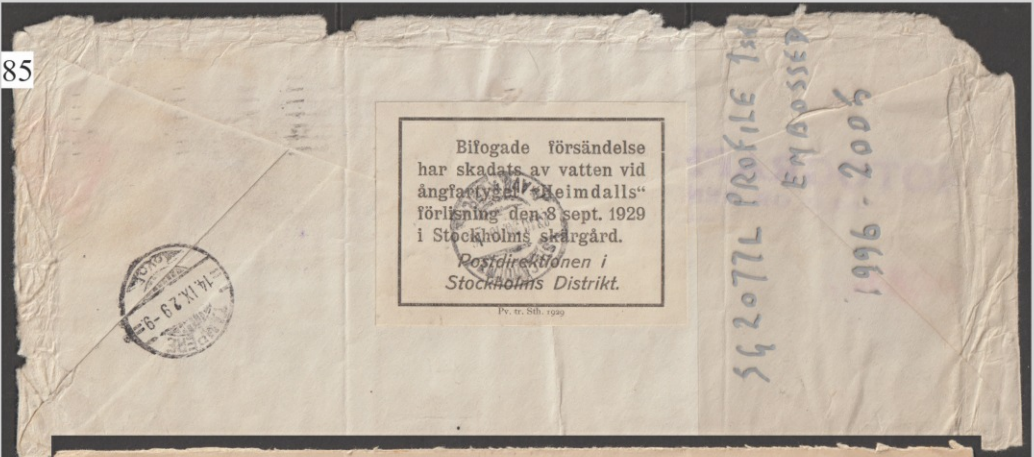 85
Bifogade försändelse
har skadats av vatten vid
ångfartyget „Heimdalls“
förlisning den 8 sept. 1929
i Stockholms skärgård.
Postdirektionen i
Stockholms Distrikt.
Pv. tr. Sth. 1929
14.IX.29-9
TAMPERE
SG2077L PROFILE 1st
EMBOSSED
1996-2005